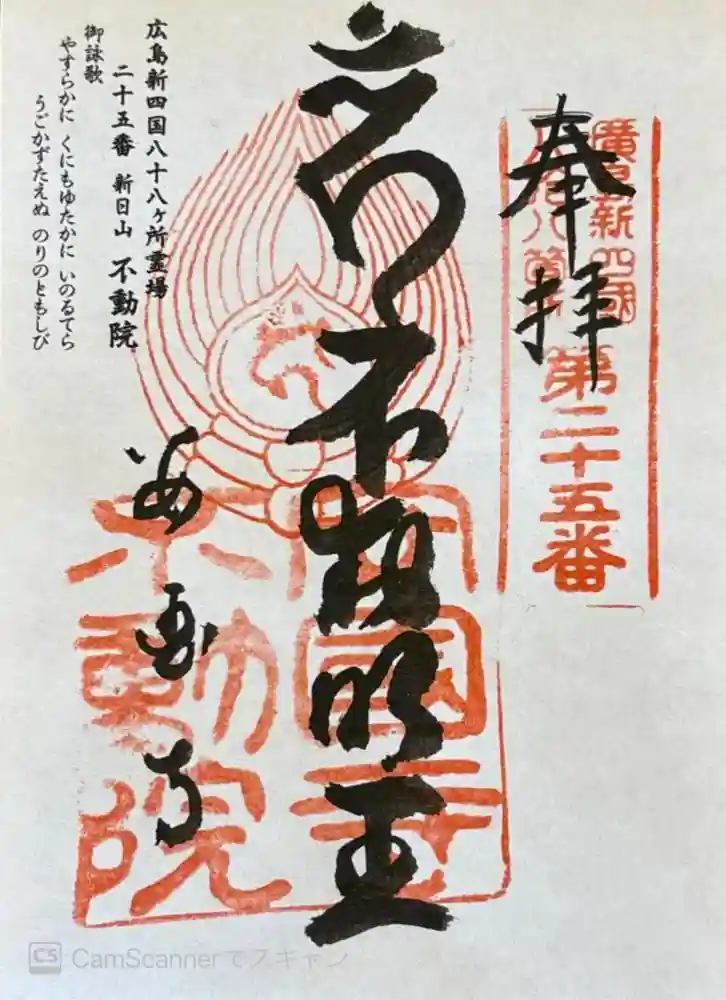 奉拝
廣島新四國
八十八箇所
第二十五番
不動明王
安国寺
安國寺
不動院
広島新四国八十八ヶ所霊場
二十五番 新日山 不動院
御詠歌
やすらかに くにもゆたかに いのるてら
うごかずたえぬ のりのともしび
CS CamScannerでスキャン